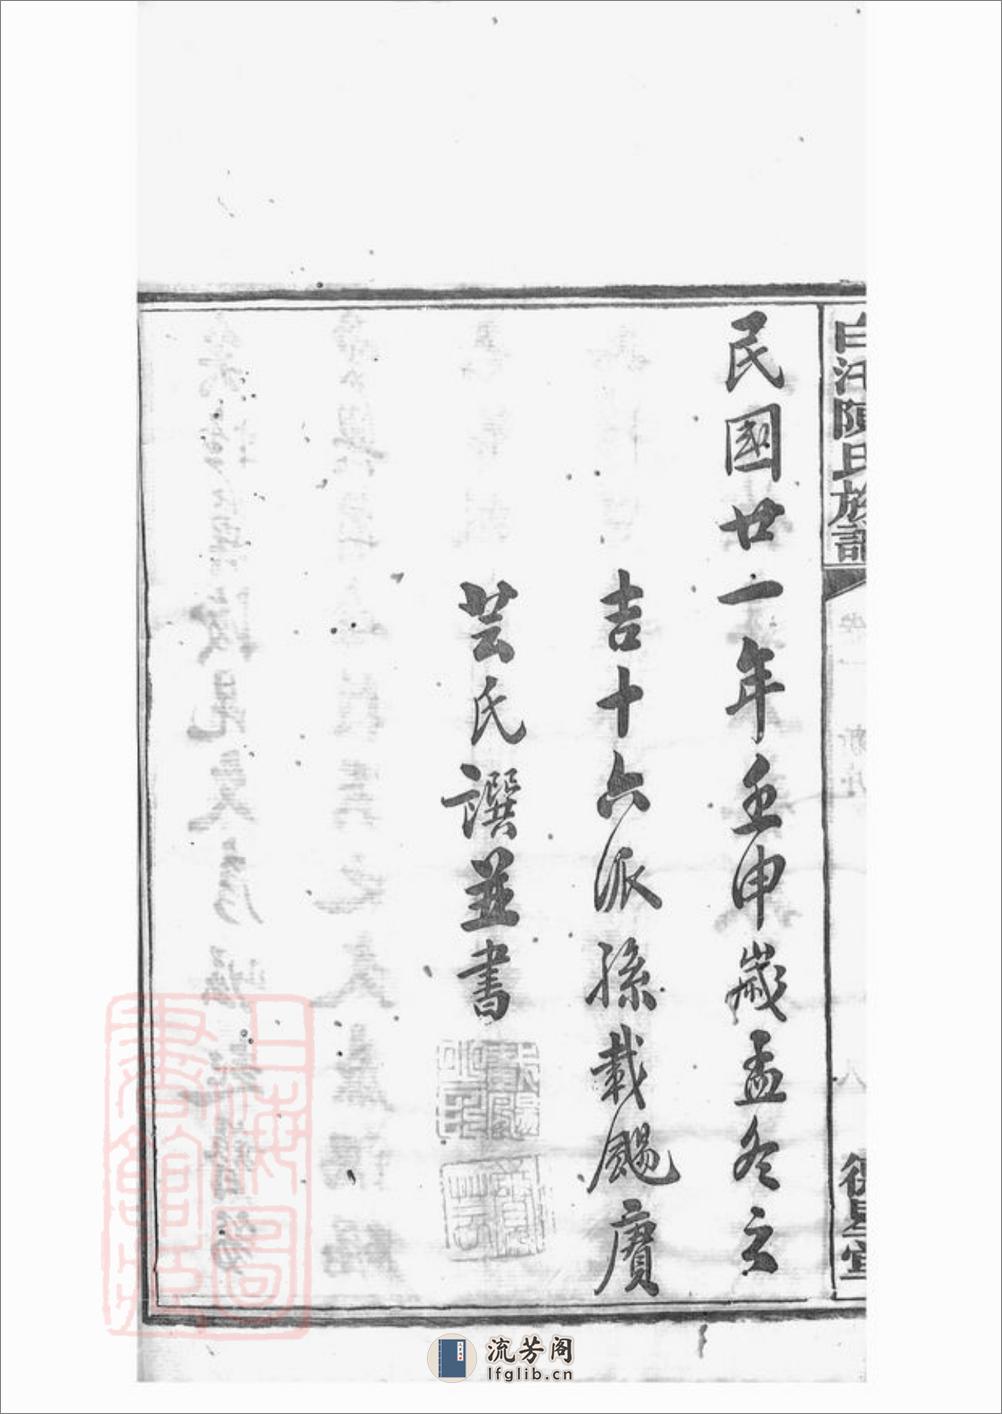 民國廿一年壬申歲孟冬之
吉十六派孫載颺賡
芸氏譔並書
陳氏族譜
上海圖書館藏
流芳阁
lfglib.cn